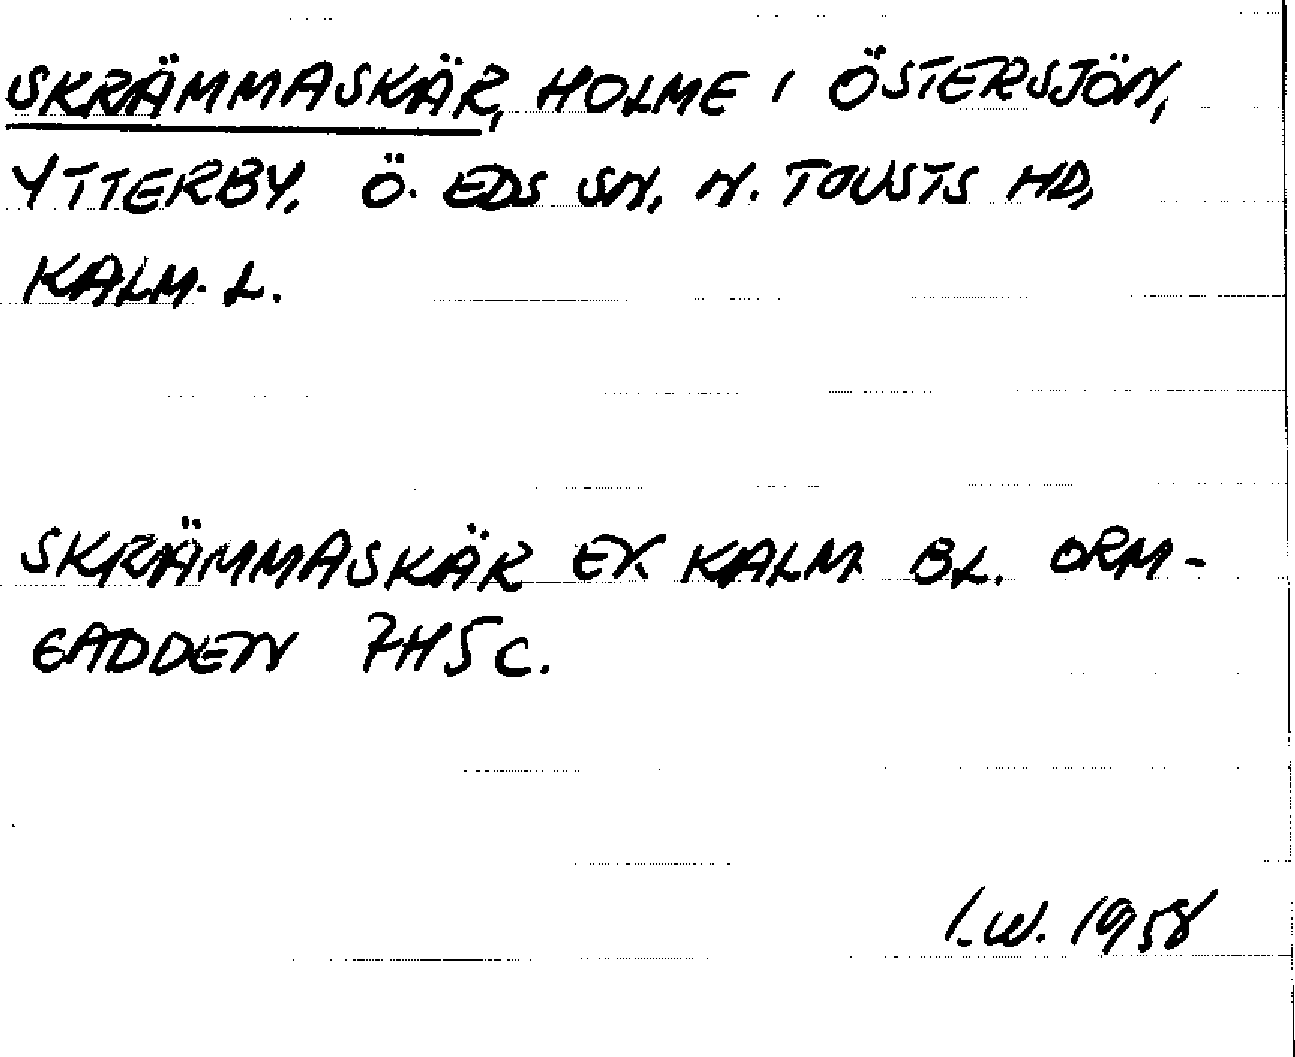 SKRÄMMASKÄR, HOLME I ÖSTERSJÖN,
YTTERBY, Ö. EDS SN, N. TJUSTS HD,
KALM. L.
SKRÄMMASKÄR EK. KALM. BL. ORM-
GADDEN 7H5c.
I.W. 1958